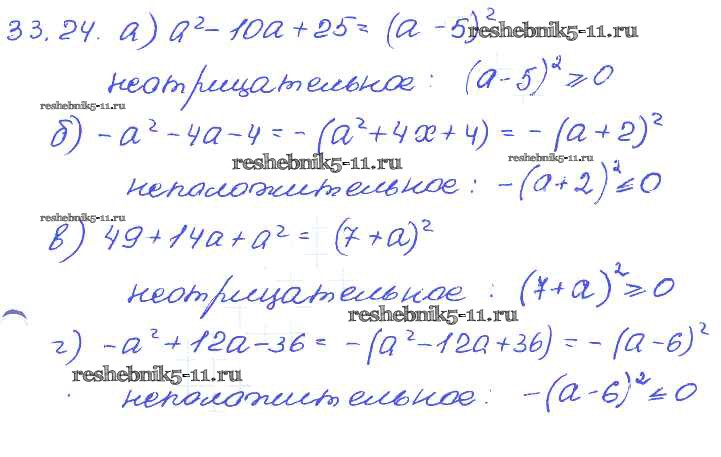 33.24. а) a² - 10a + 25 = (a - 5)²
reshebnik5-11.ru
неотрицательное: (a - 5)² ≥ 0
reshebnik5-11.ru
б) -a² - 4a - 4 = -(a² + 4x + 4) = -(a + 2)²
reshebnik5-11.ru reshebnik5-11.ru
неположительное: -(a + 2)² ≤ 0
reshebnik5-11.ru
в) 49 + 14a + a² = (7 + a)²
неотрицательное: (7 + a)² ≥ 0
reshebnik5-11.ru
г) -a² + 12a - 36 = -(a² - 12a + 36) = -(a - 6)²
reshebnik5-11.ru
неположительное: -(a - 6)² ≤ 0